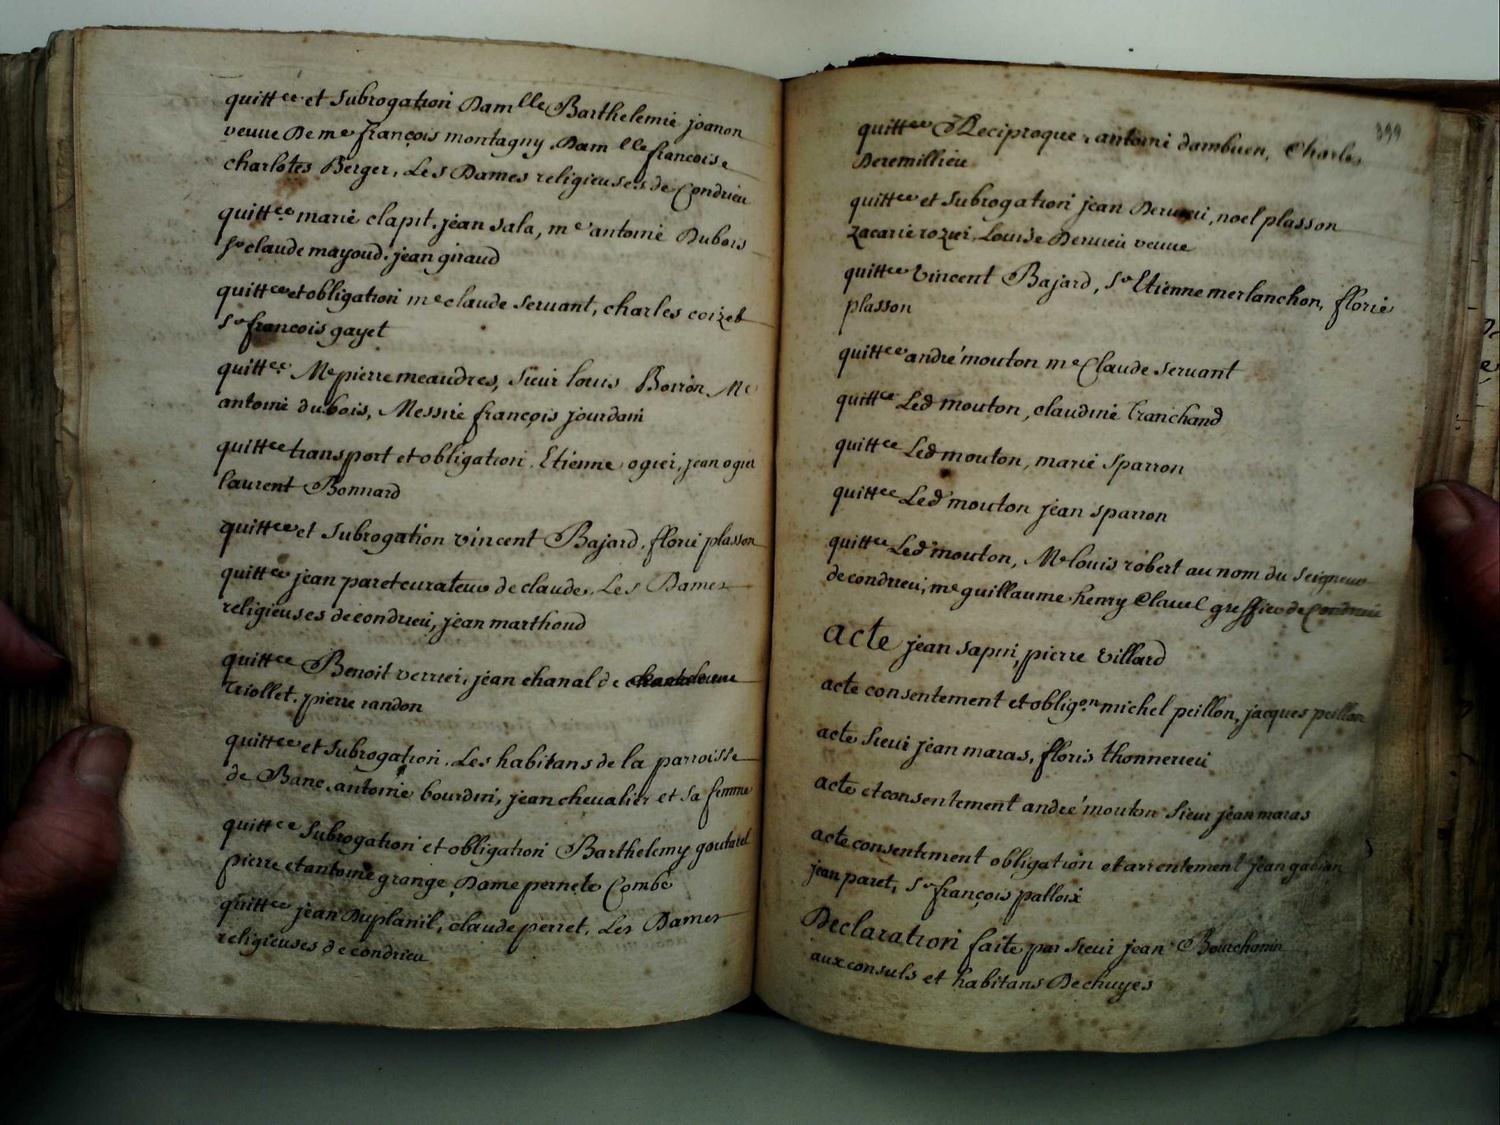 quitt.ce et Subrogation Dam.lle Barthelemie joanon
veuue De m.e françois montagny. Dam.lle francoise
charlotes Berger, Les Dames religieuses de Condrieu
quitt.ce marie clapit. jean sala, m.e antoine Dubois
s.r claude mayoud. jean giraud
quitt.ce et obligation m.e claude seruant, charles coizet
s.r françois gayet
quitt.ce M.e pierre meaudres, sieur louis Boiron M.e
antoine dubois, Messire françois jourdain
quitt.ce transport et obligation. Etienne ogier, jean ogier
laurent Bonnard
quitt.ce et Subrogation vincent Bajard, florie plasson
quitt.ce jean paret curateur de claude, Les Dames
religieuses de condrieu, jean marthoud
quitt.ce Benoit verrier, jean chanal de
triollet. pierre randon
quitt.ce et Subrogation. Les habitans de la parroisse
de Bane. antoine bourdin, jean cheualier et sa femme
quitt.ce Subrogation et obligation Barthelemy goutarel
pierre et antoine grange Dame pernete Combe
quitt.ce jean Duplanil, claude perret, Les Dames
religieuses de condrieu
399
quitt.ce Reciproque. antoine dambuen, Charles
Deremillieu
quitt.ce et Subrogation jean, noel plasson
zacarie rozier. Louise Deruieu veuue
quitt.ce Vincent Bajard, s.r Etienne merlanchon, florie
plasson
quitt.ce andré mouton m.e Claude seruant
quitt.ce Led mouton, claudine Tranchand
quitt.ce Led mouton, marie sparron
quitt.ce Led mouton jean sparron
quitt.ce Led mouton, M.e louis robert au nom du seigneur
de condrieu, m.e guillaume henry Clauel greffier de Condrieu
acte jean sapin, pierre Villard
acte consentement et oblig.on michel peillon, jacques peillon
acte sieur jean maras, floris thonnerieu
acte et consentement andré mouton sieur jean maras
acte consentement obligation et arrentement jean gabian
jean paret, s.r françois palloix
Declaration faite par sieur jean Bourchanin
aux consuls et habitans De chuyes